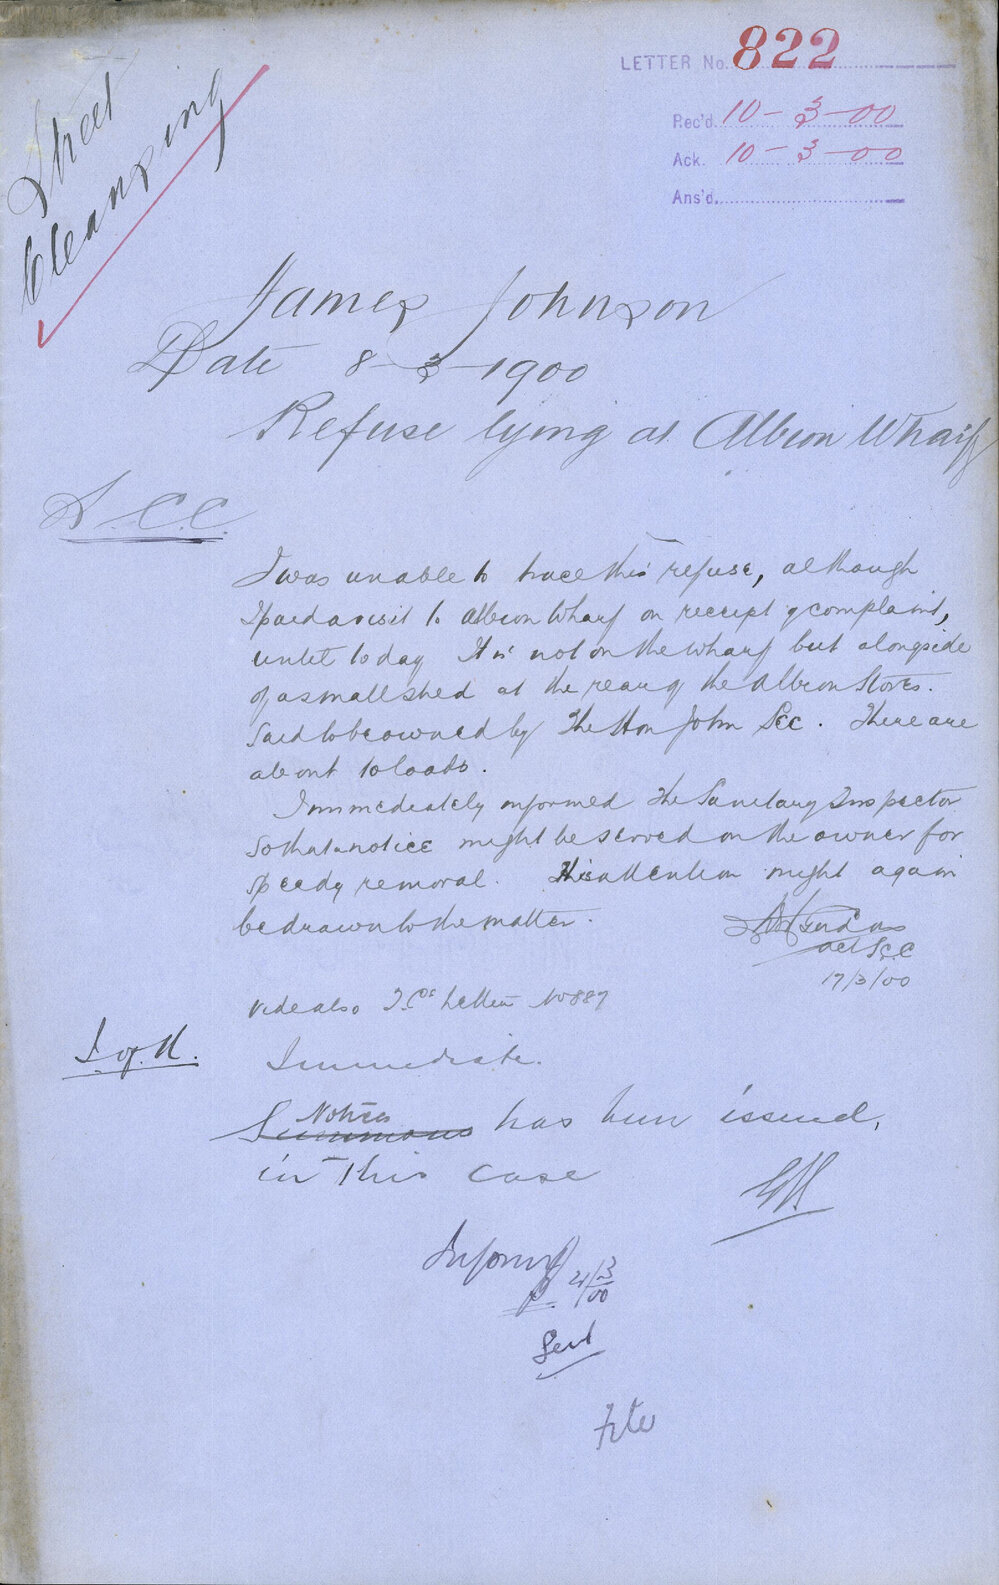 LETTER No. 822
Rec'd. 10-3-00
Ack. 10-3-00
Ans'd.
Street
Cleansing
James Johnson
Date 8-3-1900
Refuse lying at Albion Wharf
S.C.C.
I was unable to trace this refuse, although
I paid a visit to Albion Wharf on receipt of complaint,
until today It is not on the wharf but alongside
of a small shed at the rear of the Albion Stores.
Said to be owned by The Hon John See. There are
about 10 loads.
I immediately informed the Sanitary Inspector
so that a notice might be served on the owner for
speedy removal. His attention might again
be drawn to the matter.
act S.C.C
17/3/00
Vide also T.Cs Letter No 887
I. of N.
Immediate.
Notices
Summons has been issued,
in this case
Inform
21/3/00
Sent